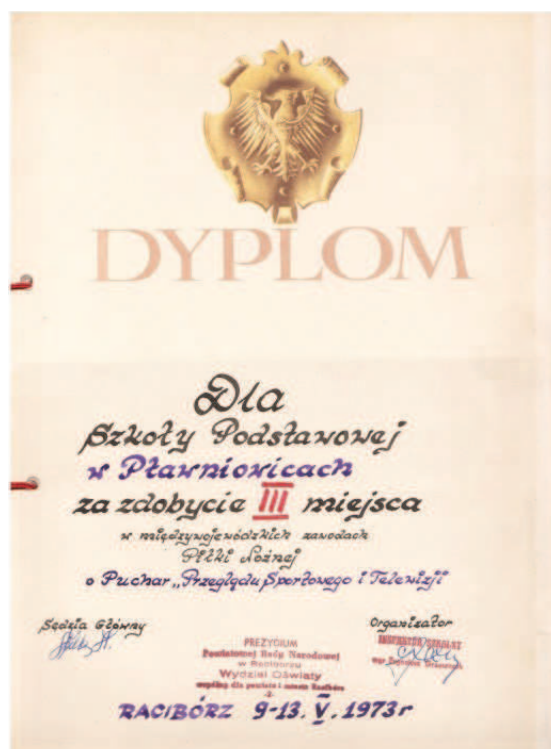 DYPLOM
Dla
Szkoły Podstawowej
w Pławniowicach
za zdobycie III miejsca
w międzywojewódzkich zawodach
Piłki Nożnej
o Puchar „Przeglądu Sportowego i Telewizji
Sędzia Główny
Organizator
PREZYDIUM
Powiatowej Rady Narodowej
w Raciborzu
Wydział Oświaty
wspólny dla powiatu i miasta Racibórz
-2-
INSPEKTOR SZKOLNY
RACIBÓRZ 9-13. V. 1973 r